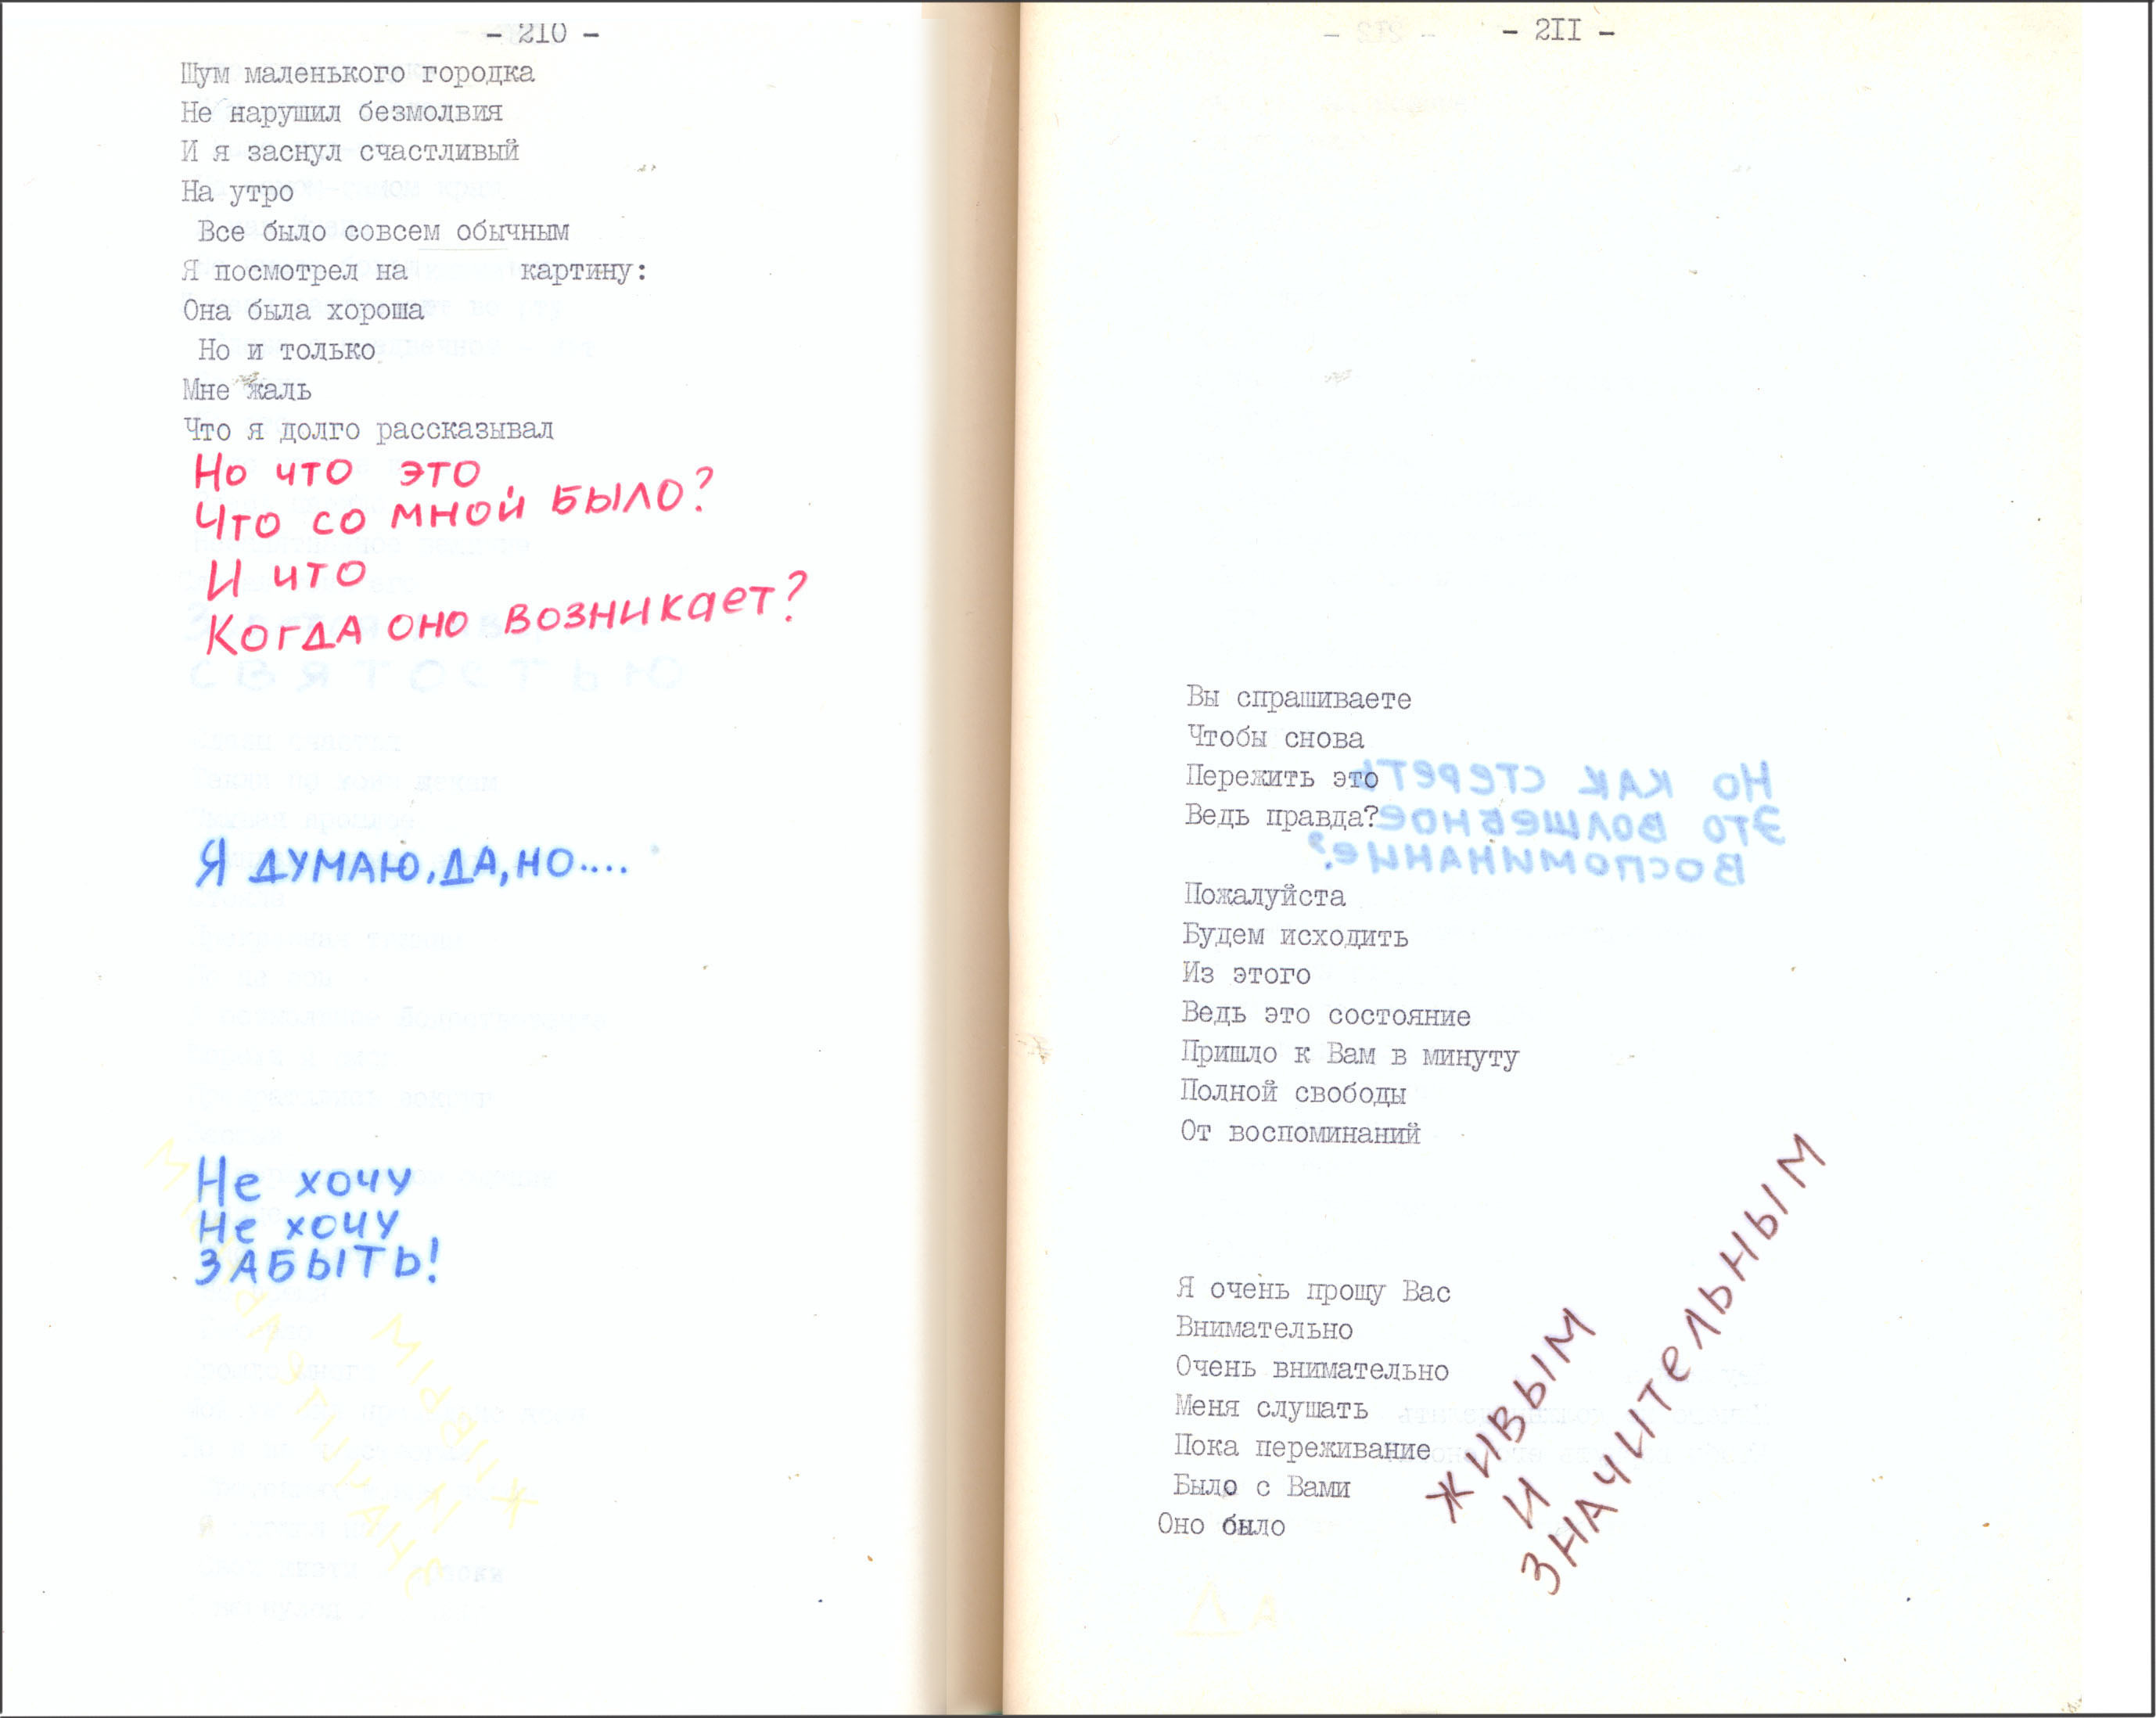 - 210 -
Шум маленького городка
Не нарушил безмолвия
И я заснул счастливый
На утро
Все было совсем обычным
Я посмотрел на картину:
Она была хороша
Но и только
Мне жаль
Что я долго рассказывал
Но что это
Что со мной было?
И что
Когда оно возникает?
Я думаю, да, но....
Не хочу
Не хочу
ЗАБЫТЬ!
- 2II -
Вы спрашиваете
Чтобы снова
Пережить это
Ведь правда?
Но как стереть
Это волшебное
Воспоминание?
Пожалуйста
Будем исходить
Из этого
Ведь это состояние
Пришло к Вам в минуту
Полной свободы
От воспоминаний
Я очень прошу Вас
Внимательно
Очень внимательно
Меня слушать
Пока переживание
Было с Вами
Оно было
живым
и
значительным